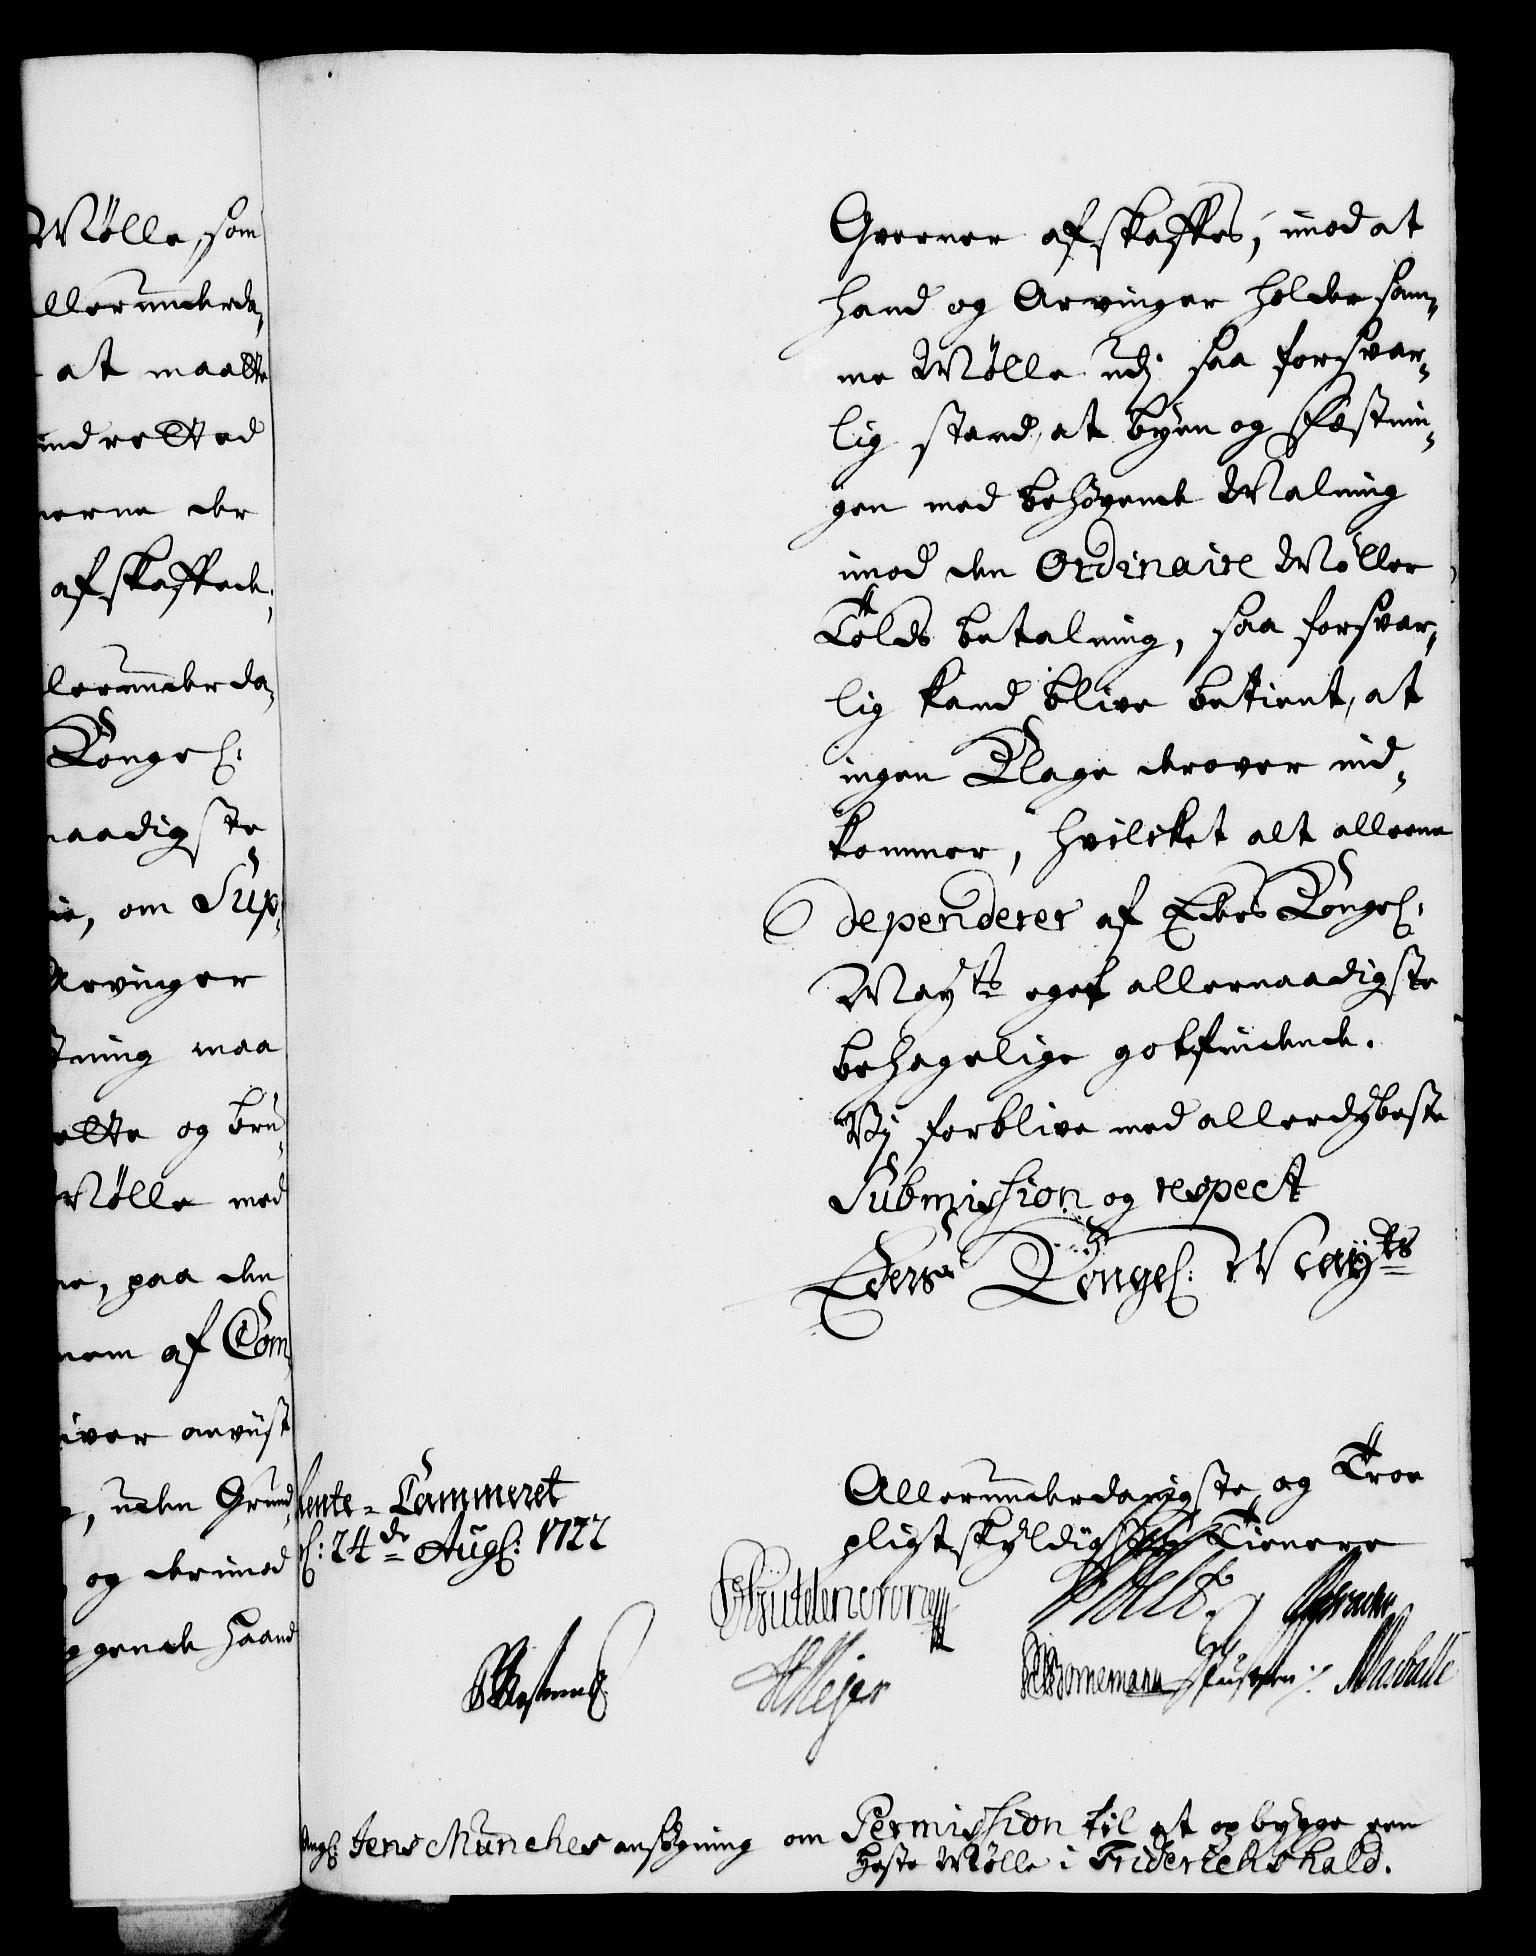 Mølle, som
llerunderda,
at maatte
indretted
nerne der
afskaffede,
lerunderda,
Kongel:
naadigste
ie, om Sup,
Arvinger
tning maa
ette og bru,
Mølle med
ne, paa den
nem af Com,
iver anviist
, uden Grund,
og derimod
ggende haand
Qverner afskaffes, imod at
hand og Arvinger holder sam,
me Mølle udj saa forsvar,
lig stand, at byen og Fæstnin,
gen med behøvende Malning
imod den Ordinaire Møller
Tolds betalning, saa forsvar,
lig kand blive betient, at
ingen Klage derover ind,
kommer, hvilcket alt alleene
dependerer af Eders Kongel:
Mayts eget allernaadigste
behagelige gotfindende.
Vij forblive med allerdybeste
Submission og respect
Eders Kongel: Mayts
Rente-Cammeret
d: 24de Aug: 1722
Allerunderdanigste og Troe
pligtskyldigste Tienere
CHMejer
Bornemann
Jens Munches ansøgning om Permission til at opbygge een
Heste Mølle i Friderichshald.